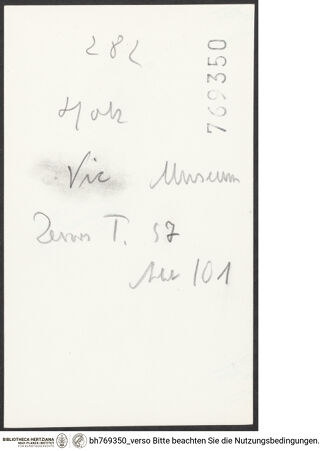 282
769350
Holz
Vic Museum
Zervos T. 57
Abb 101
BIBLIOTHECA HERTZIANA
MAX-PLANCK-INSTITUT
FÜR KUNSTGESCHICHTE
bh769350_verso Bitte beachten Sie die Nutzungsbedingungen.